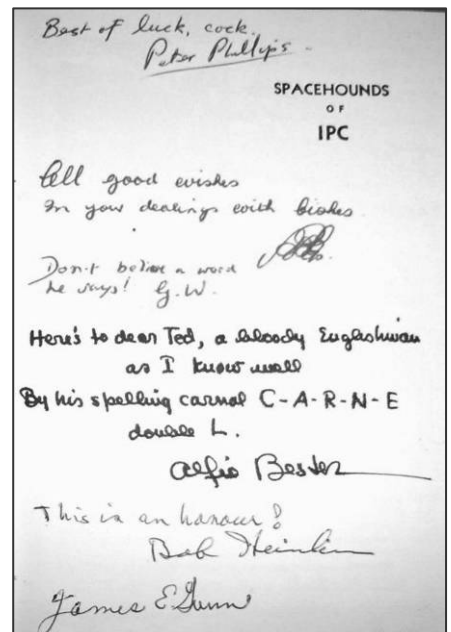 Best of luck, cock.
Peter Phillips.
SPACEHOUNDS
OF
IPC
All good wishes
In your dealings with
Don't believe a word
he says! G.W.
Here's to dear Ted, a bloody Englishman
as I know well
By his spelling carnal C-A-R-N-E
double L.
Alfie Bester
This is an honour!
Bob Heinlein
James E Gunn